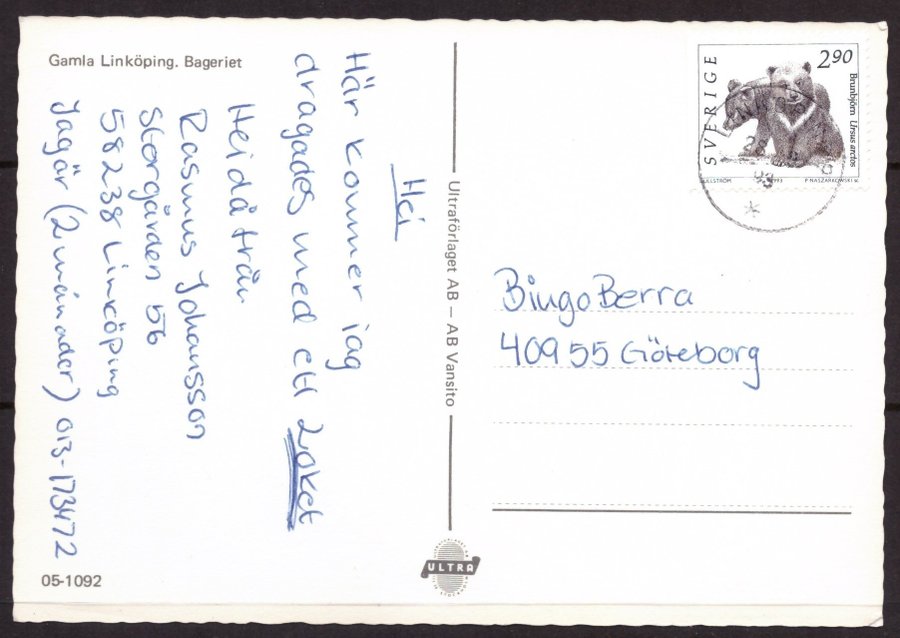 Gamla Linköping. Bageriet
Hej
Här kommer jag
dragades med ett Loket
Hei då från
Rasmus Johansson
Storgården 56
58238 Linköping
Jagär (2 månader) 013-173472
05-1092
Ultraförlaget AB – AB Vansito
ULTRA
SVERIGE
2.90
Brunbjörn Ursus arctos
1993
P. NASZARKOWSKI sc
BingoBerra
409 55 Göteborg